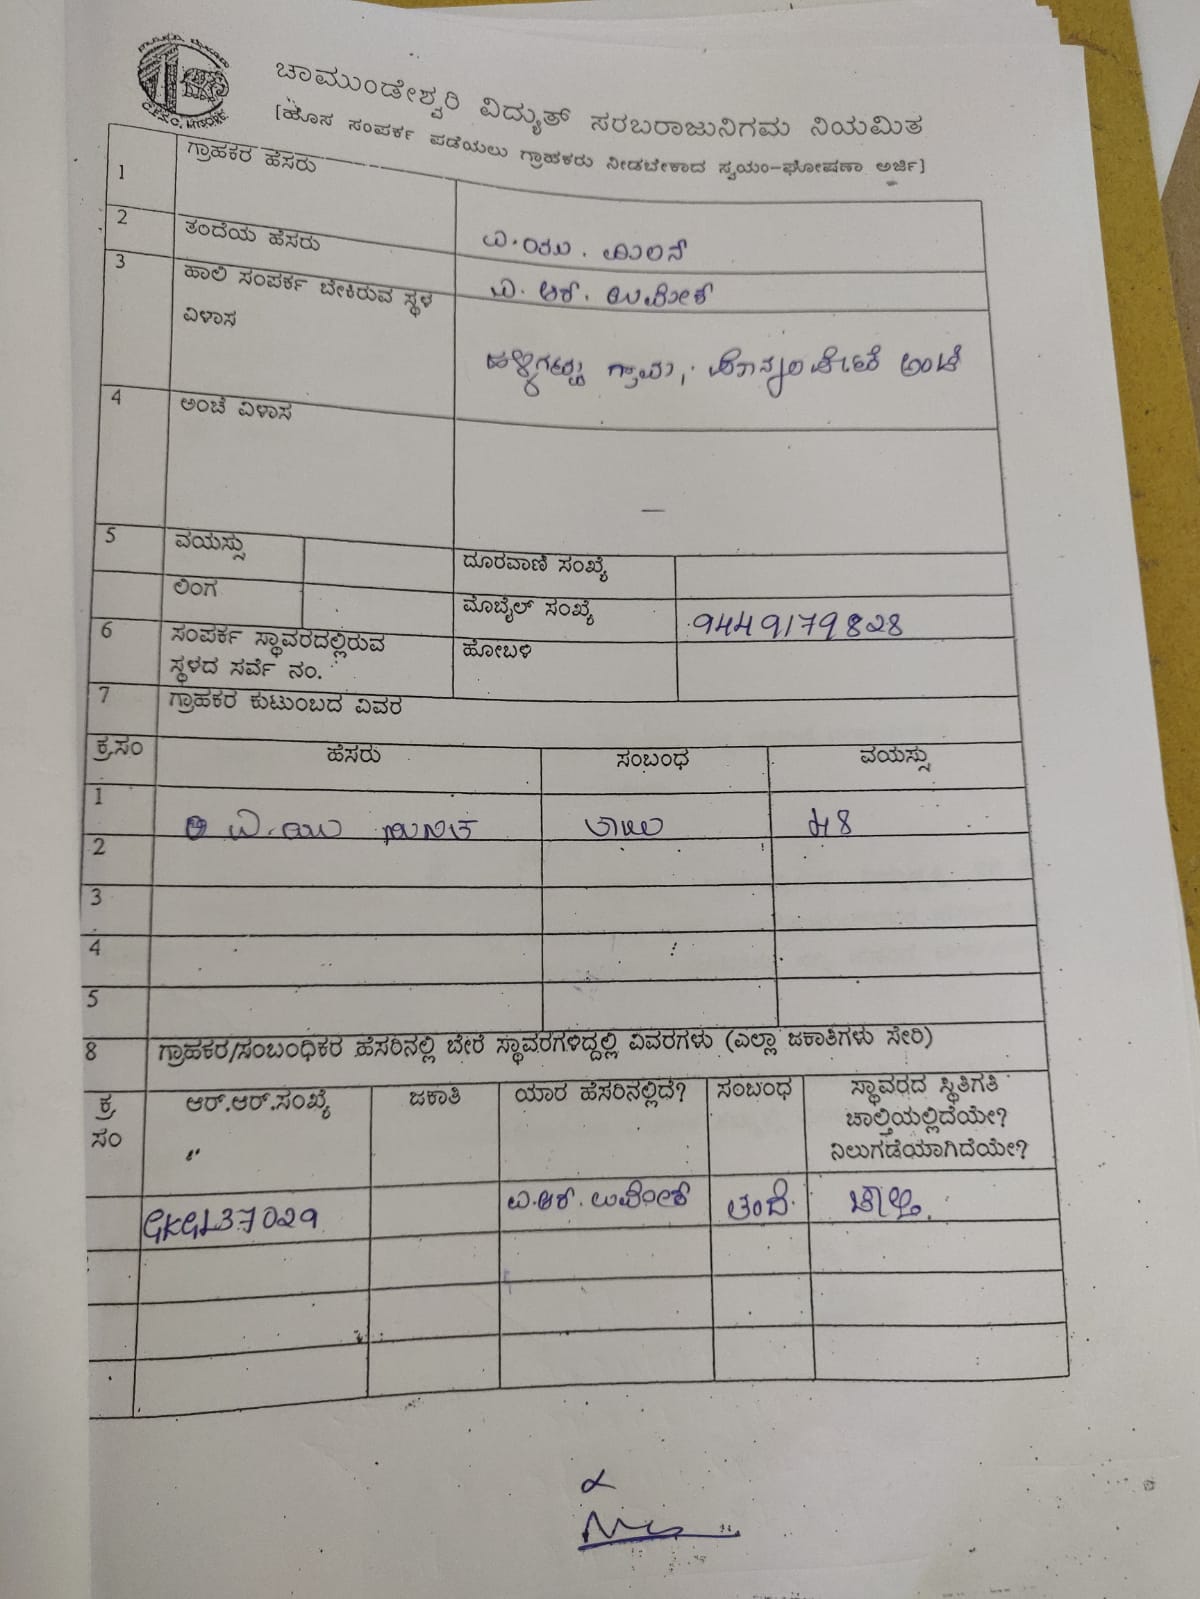 ಚಾಮುಂಡೇಶ್ವರಿ ವಿದ್ಯುತ್ ಸರಬರಾಜುನಿಗಮ ನಿಯಮಿತ
[ಹೊಸ ಸಂಪರ್ಕ ಪಡೆಯಲು ಗ್ರಾಹಕರು ನೀಡಬೇಕಾದ ಸ್ವಯಂ-ಘೋಷಣಾ ಅರ್ಜಿ]
1 ಗ್ರಾಹಕರ ಹೆಸರು ವಿ.ಯು.
2 ತಂದೆಯ ಹೆಸರು ವಿ. ಆರ್. ಉಮೇಶ್
3 ಹಾಲಿ ಸಂಪರ್ಕ ಬೇಕಿರುವ ಸ್ಥಳ
ವಿಳಾಸ ಹಳ್ಳಿಗಟ್ಟು ಗ್ರಾಮ, ಪೊನ್ನಂಪೇಟೆ ಅಂಚೆ
4 ಅಂಚೆ ವಿಳಾಸ —
5 ವಯಸ್ಸು ದೂರವಾಣಿ ಸಂಖ್ಯೆ
ಲಿಂಗ ಮೊಬೈಲ್ ಸಂಖ್ಯೆ 9449179828
6 ಸಂಪರ್ಕ ಸ್ಥಾವರದಲ್ಲಿರುವ ಹೋಬಳಿ
ಸ್ಥಳದ ಸರ್ವೆ ನಂ.
7 ಗ್ರಾಹಕರ ಕುಟುಂಬದ ವಿವರ
ಕ್ರ.ಸಂ ಹೆಸರು ಸಂಬಂಧ ವಯಸ್ಸು
1 ವಿ.ಯು 48
2
3
4
5
8 ಗ್ರಾಹಕರ/ಸಂಬಂಧಿಕರ ಹೆಸರಿನಲ್ಲಿ ಬೇರೆ ಸ್ಥಾವರಗಳಿದ್ದಲ್ಲಿ ವಿವರಗಳು (ಎಲ್ಲಾ ಜಕಾತಿಗಳು ಸೇರಿ)
ಕ್ರ ಆರ್.ಆರ್.ಸಂಖ್ಯೆ ಜಕಾತಿ ಯಾರ ಹೆಸರಿನಲ್ಲಿದೆ? ಸಂಬಂಧ ಸ್ಥಾವರದ ಸ್ಥಿತಿಗತಿ
ಸಂ ಚಾಲ್ತಿಯಲ್ಲಿದೆಯೇ?
ನಿಲುಗಡೆಯಾಗಿದೆಯೇ?
GKGL37029 ವಿ.ಆರ್. ಉಮೇಶ್ ತಂದೆ. ಚಾಲ್ತಿ.